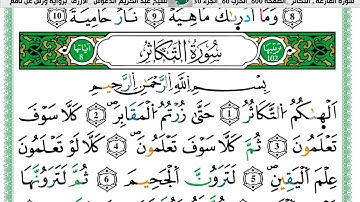 سورة القارعة , التكاثر , الصفحة 600 الحزب 60 الجزء 30 شيخ عبد الكريم الدغوش , الأزرق , برواية ورش عن نافع
٨ وَمَآ أَدْر۪ىٰكَ مَا هِيَهْ ٩ نَارٌ حَامِيَةٌ ١٠
ترتيبها 102 سُورَةُ التَّكَاثُرِ آياتها 8
بِسْمِ اللَّهِ الرَّحْمَٰنِ الرَّحِيمِ
أَلْه۪ىٰكُمُ التَّكَاثُرُ ١ حَتَّىٰ زُرْتُمُ الْمَقَابِرَ ٢ كَلَّا سَوْفَ
تَعْلَمُونَ ٣ ثُمَّ كَلَّا سَوْفَ تَعْلَمُونَ ٤ كَلَّا لَوْ تَعْلَمُونَ
عِلْمَ الْيَقِينِ ٥ لَتَرَوُنَّ الْجَحِيمَ ٦ ثُمَّ لَتَرَوُنَّهَا